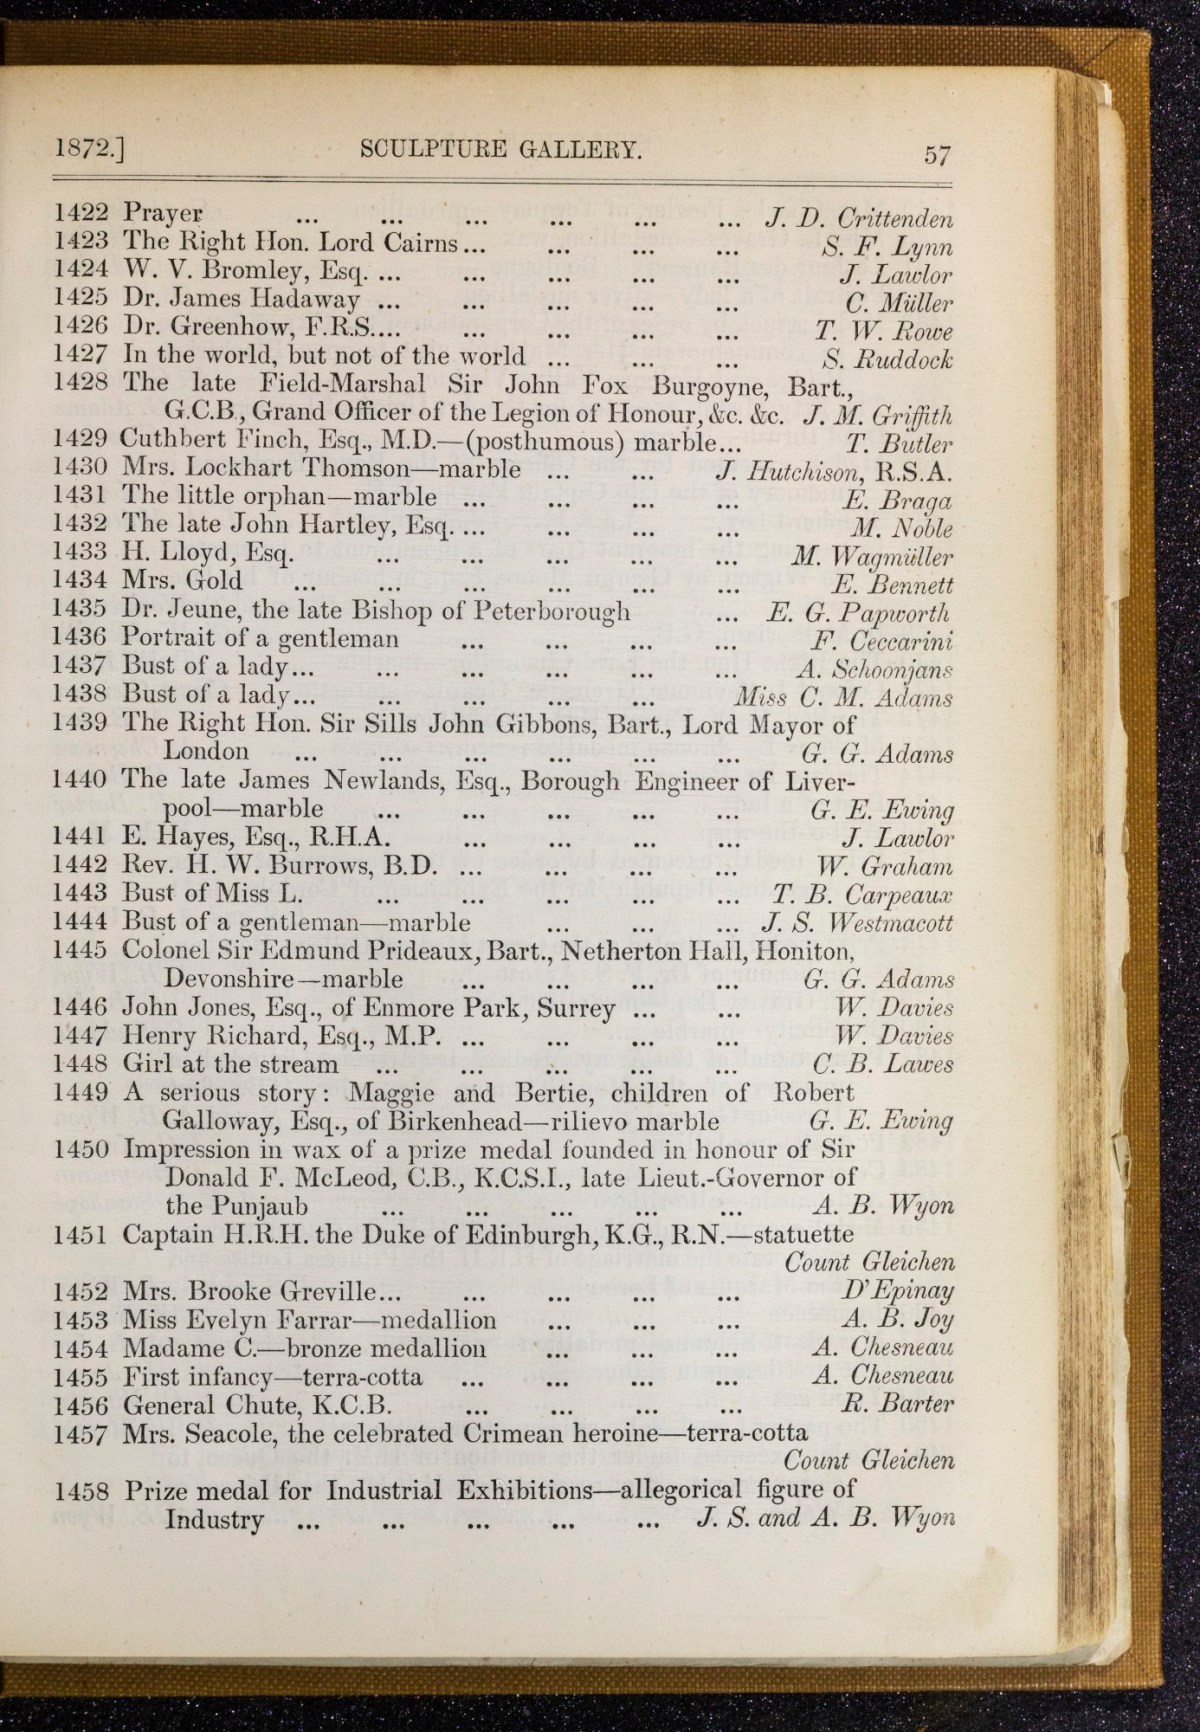 1872.] SCULPTURE GALLERY. 57
1422 Prayer ... ... ... ... ... ... J. D. Crittenden
1423 The Right Hon. Lord Cairns... ... ... ... S. F. Lynn
1424 W. V. Bromley, Esq. ... ... ... ... ... J. Lawlor
1425 Dr. James Hadaway ... ... ... ... ... C. Müller
1426 Dr. Greenhow, F.R.S.... ... ... ... ... T. W. Rowe
1427 In the world, but not of the world ... ... ... S. Ruddock
1428 The late Field-Marshal Sir John Fox Burgoyne, Bart.,
G.C.B., Grand Officer of the Legion of Honour, &c. &c. J. M. Griffith
1429 Cuthbert Finch, Esq., M.D.—(posthumous) marble... T. Butler
1430 Mrs. Lockhart Thomson—marble ... ... J. Hutchison, R.S.A.
1431 The little orphan—marble ... ... ... ... E. Braga
1432 The late John Hartley, Esq. ... ... ... ... M. Noble
1433 H. Lloyd, Esq. ... ... ... ... ... M. Wagmüller
1434 Mrs. Gold ... ... ... ... ... ... E. Bennett
1435 Dr. Jeune, the late Bishop of Peterborough ... E. G. Papworth
1436 Portrait of a gentleman ... ... ... ... F. Ceccarini
1437 Bust of a lady... ... ... ... ... ... A. Schoonjans
1438 Bust of a lady... ... ... ... ... Miss C. M. Adams
1439 The Right Hon. Sir Sills John Gibbons, Bart., Lord Mayor of
London ... ... ... ... ... ... G. G. Adams
1440 The late James Newlands, Esq., Borough Engineer of Liver-
pool—marble ... ... ... ... ... G. E. Ewing
1441 E. Hayes, Esq., R.H.A. ... ... ... ... J. Lawlor
1442 Rev. H. W. Burrows, B.D. ... ... ... ... W. Graham
1443 Bust of Miss L. ... ... ... ... ... T. B. Carpeaux
1444 Bust of a gentleman—marble ... ... ... J. S. Westmacott
1445 Colonel Sir Edmund Prideaux, Bart., Netherton Hall, Honiton,
Devonshire—marble ... ... ... ... G. G. Adams
1446 John Jones, Esq., of Enmore Park, Surrey ... ... W. Davies
1447 Henry Richard, Esq., M.P. ... ... ... ... W. Davies
1448 Girl at the stream ... ... ... ... ... C. B. Lawes
1449 A serious story: Maggie and Bertie, children of Robert
Galloway, Esq., of Birkenhead—rilievo marble G. E. Ewing
1450 Impression in wax of a prize medal founded in honour of Sir
Donald F. McLeod, C.B., K.C.S.I., late Lieut.-Governor of
the Punjaub ... ... ... ... ... A. B. Wyon
1451 Captain H.R.H. the Duke of Edinburgh, K.G., R.N.—statuette
Count Gleichen
1452 Mrs. Brooke Greville... ... ... ... ... D'Epinay
1453 Miss Evelyn Farrar—medallion ... ... ... A. B. Joy
1454 Madame C.—bronze medallion ... ... ... A. Chesneau
1455 First infancy—terra-cotta ... ... ... ... A. Chesneau
1456 General Chute, K.C.B. ... ... ... ... R. Barter
1457 Mrs. Seacole, the celebrated Crimean heroine—terra-cotta
Count Gleichen
1458 Prize medal for Industrial Exhibitions—allegorical figure of
Industry ... ... ... ... ... J. S. and A. B. Wyon